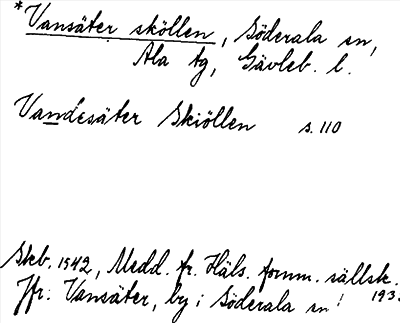 *Vansäter sköllen, Söderala sn,
Ala tg, Gävleb. l.
Vandesäter Skiöllen s. 110
Skb. 1542, Medd. fr. Häls. fornm. sällsk.
193.
Jfr: Vansäter, by i Söderala sn!